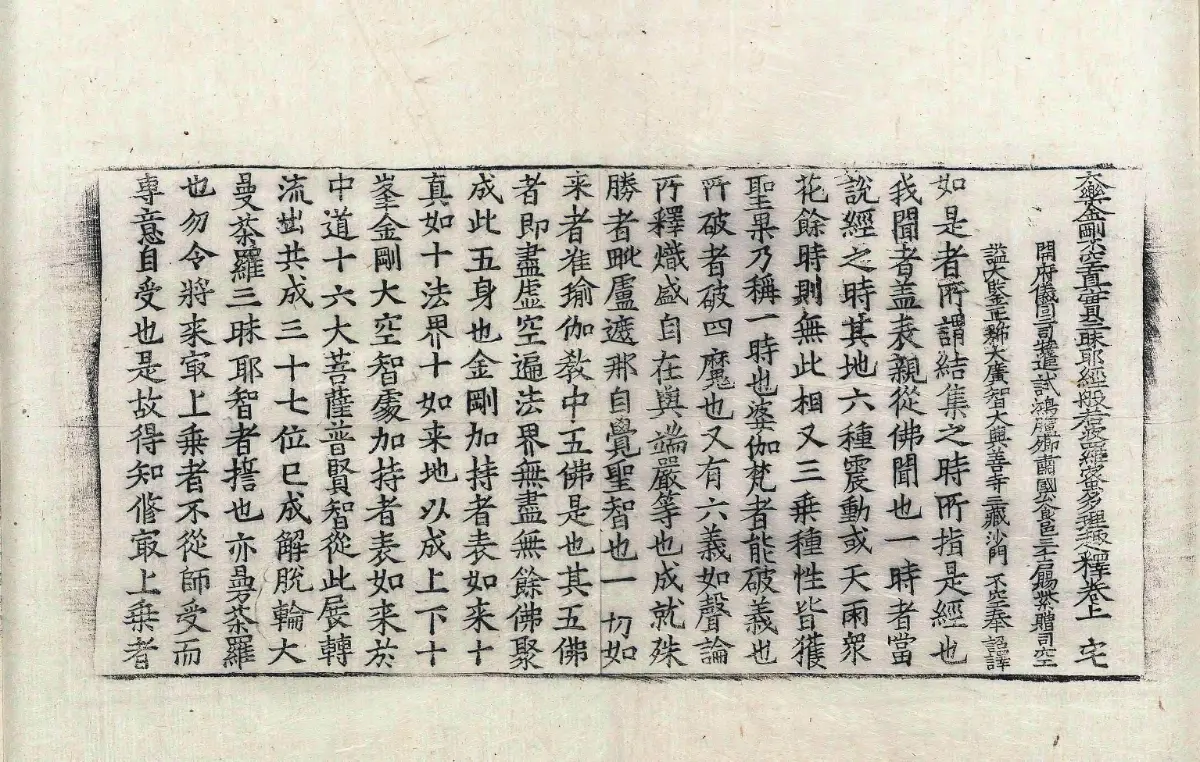 大樂金剛不空真實三昧耶經般若波羅蜜多理趣釋卷上 宅
開府儀同三司特進試鴻臚卿肅國公食邑三千户賜紫贈司空
謚大鑒正號大廣智大興善寺三藏沙門 不空奉 詔譯
如是者所謂結集之時所指是經也
我聞者盖表親從佛聞也一時者當
說經之時其地六種震動或天雨衆
花餘時則無此相又三乗種性皆獲
聖果乃稱一時也婆伽梵者能破義也
所破者破四魔也又有六義如聲論
所釋熾盛自在與端嚴等也成就殊
勝者毗盧遮那自覺聖智也一切如
来者准瑜伽教中五佛是也其五佛
者即盡虛空遍法界無盡無餘佛聚
成此五身也金剛加持者表如来十
真如十法界十如来地以成上下十
峯金剛大空智處加持者表如来於
中道十六大菩薩普賢智從此展轉
流出共成三十七位已成解脫輪大
曼荼羅三昧耶智者誓也亦曼荼羅
也勿令將来㝡上乗者不從師受而
專意自受也是故得知修㝡上乗者